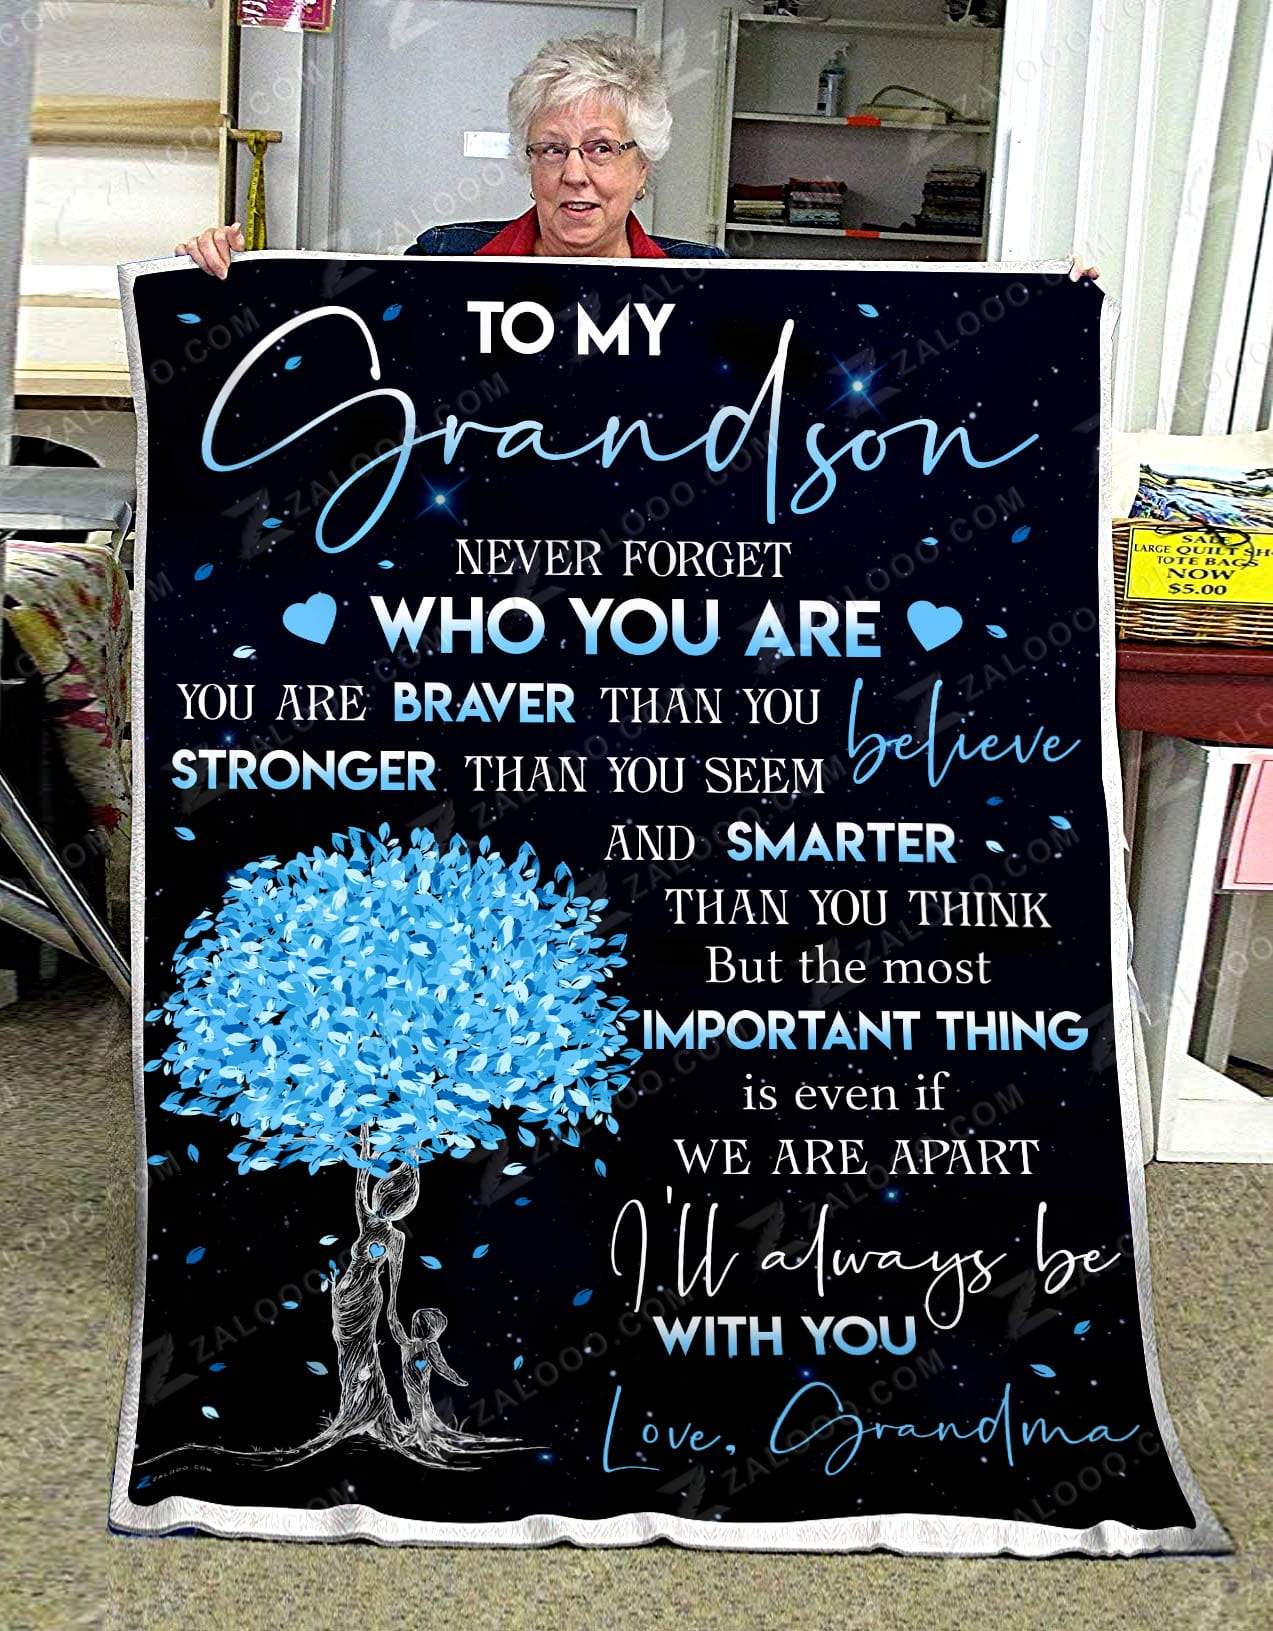 TO MY
Grandson
NEVER FORGET
WHO YOU ARE
YOU ARE BRAVER THAN YOU believe
STRONGER THAN YOU SEEM
AND SMARTER
THAN YOU THINK
But the most
IMPORTANT THING
is even if
WE ARE APART
I'll always be
WITH YOU
Love, Grandma
ZZALOOO.COM
SALE
LARGE QUILT SH
TOTE BAGS
NOW
$5.00